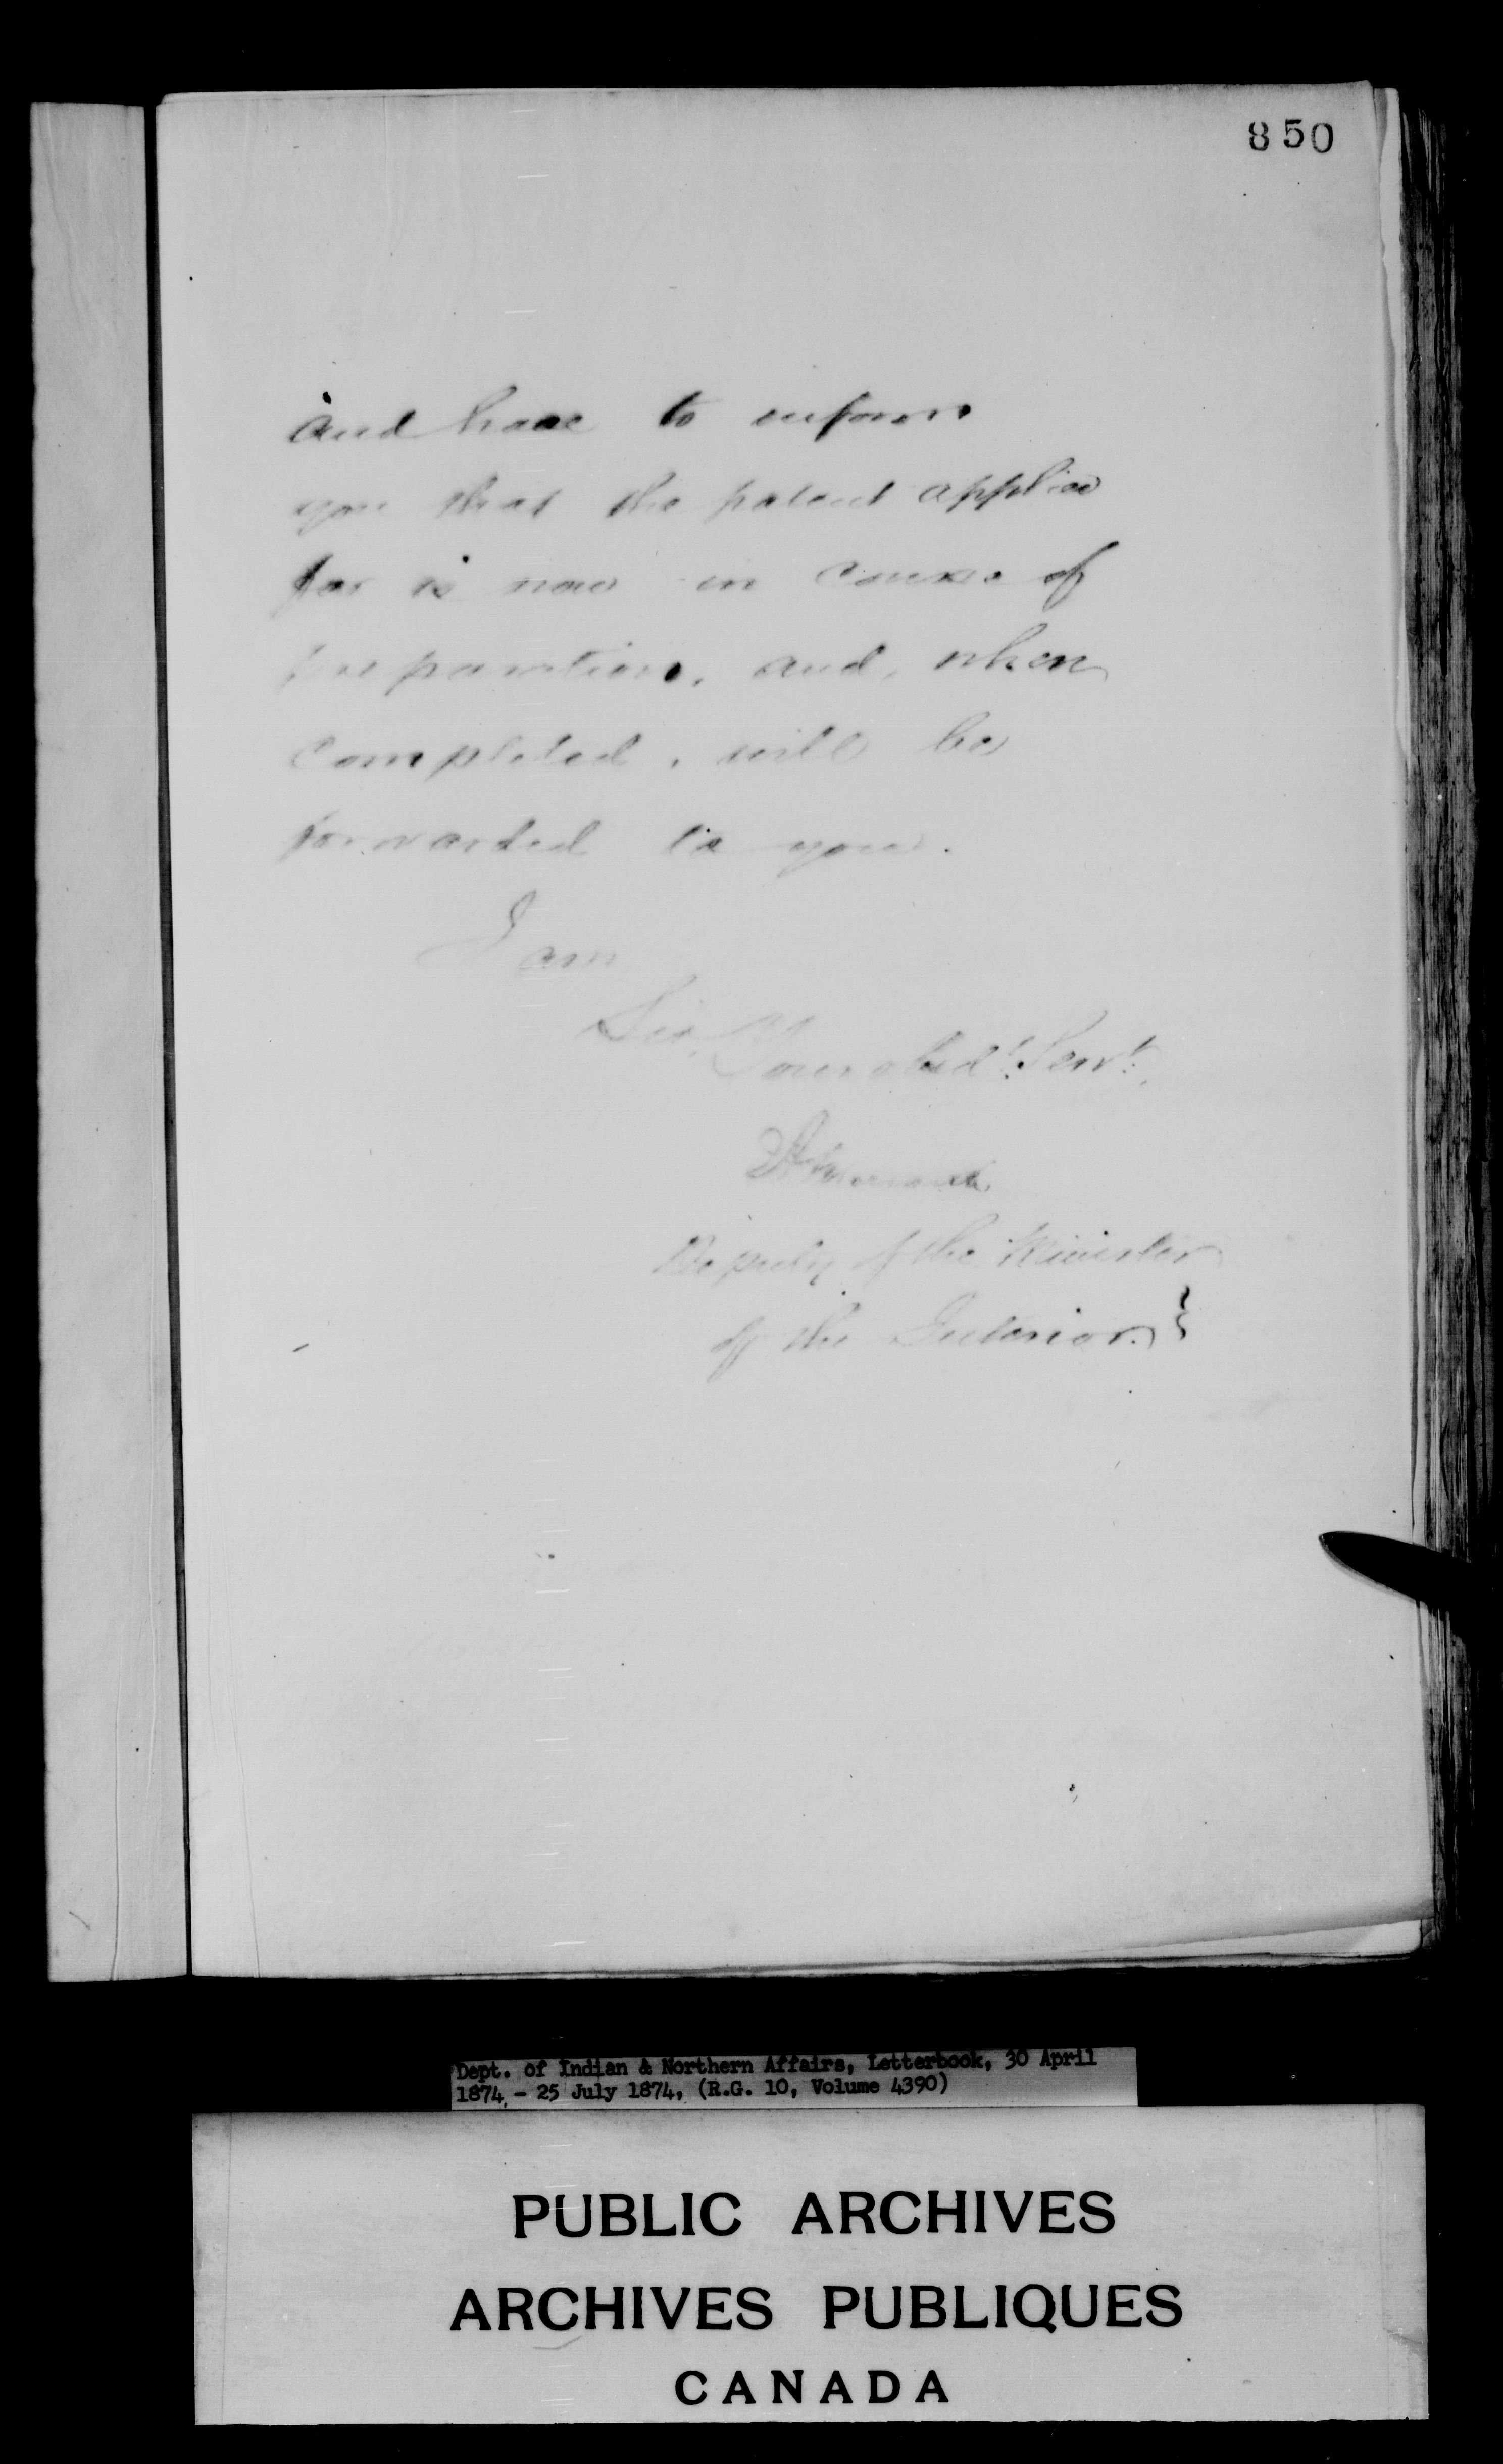 850
and have to inform
you that the patent applied
for is now in course of
preparation, and, when
completed, will be
forwarded to you.
I am
Sir,
Your obedt. Servt.
Deputy of the Minister
of the Interior }
Dept. of Indian & Northern Affairs, Letterbook, 30 April
1874 - 25 July 1874, (R.G. 10, Volume 4390)
PUBLIC ARCHIVES
ARCHIVES PUBLIQUES
CANADA